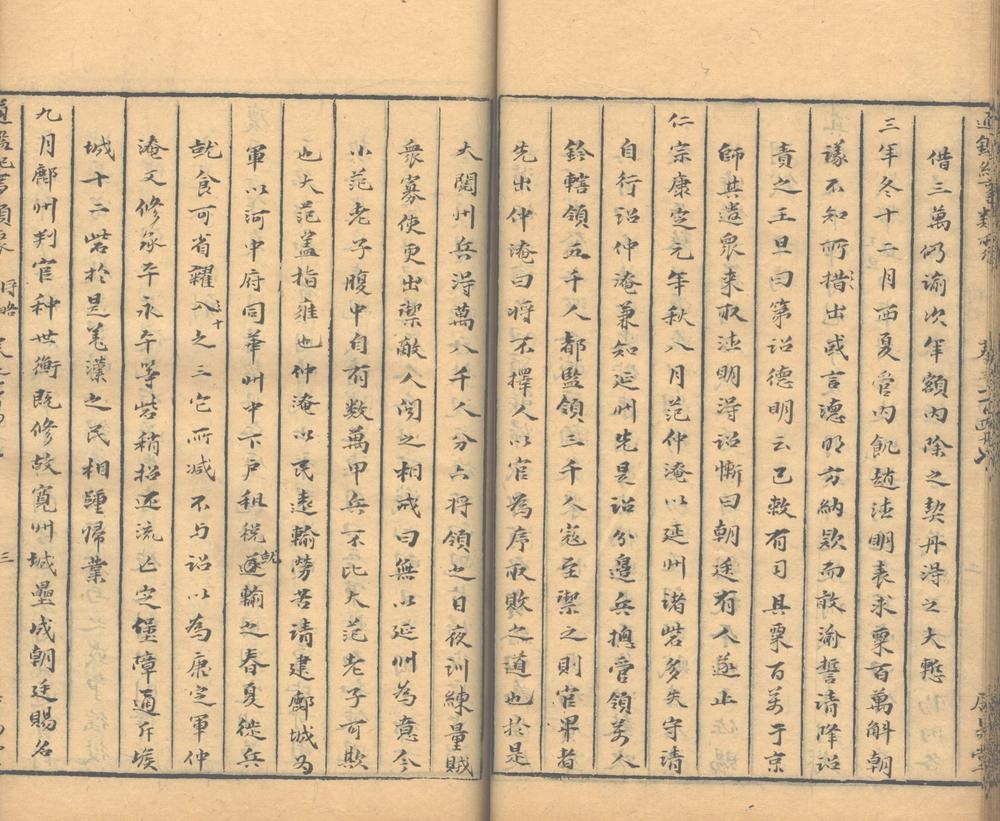 借三萬仍諭次年額內除之契丹淂之大慙
三年冬十二月西夏管內飢趙徳明表求粟百萬斛朝
議不知所措出或言徳明方納欵而敢渝誓请降诏
責之王旦曰第诏德明云已敕有司具粟百萬于京
師其遣衆来取徳明淂诏慚曰朝廷有人遂止
仁宗康定元年秋八月范仲淹以延州诸砦多失守请
自行诏仲淹兼知延州先是诏分邉兵摠管領萬人
鈐轄領五千人都監領三千人寇至禦之則官畢者
先出仲淹曰将不擇人以官為序取敗之道也於是
大閱州兵淂萬八千人分六将領之日夜训練量賊
衆寡使更出禦敵人闻之相戒曰無以延州為意今
小范老子腹中自有数萬甲兵不比大范老子可欺
也大范盖指雍也仲淹以民逺輸勞苦请建鄜城为
軍以河中府同華州中下户租税就邃輸之春夏徙兵
就食可省糴十之三它所减不与诏以為康定軍仲
淹又修承平永平等砦稍招还流亡定堡障通斥堠
城十二砦於是羌漢之民相踵帰業
九月鄜州判官种世衡既修故寛州城壘成朝廷賜名